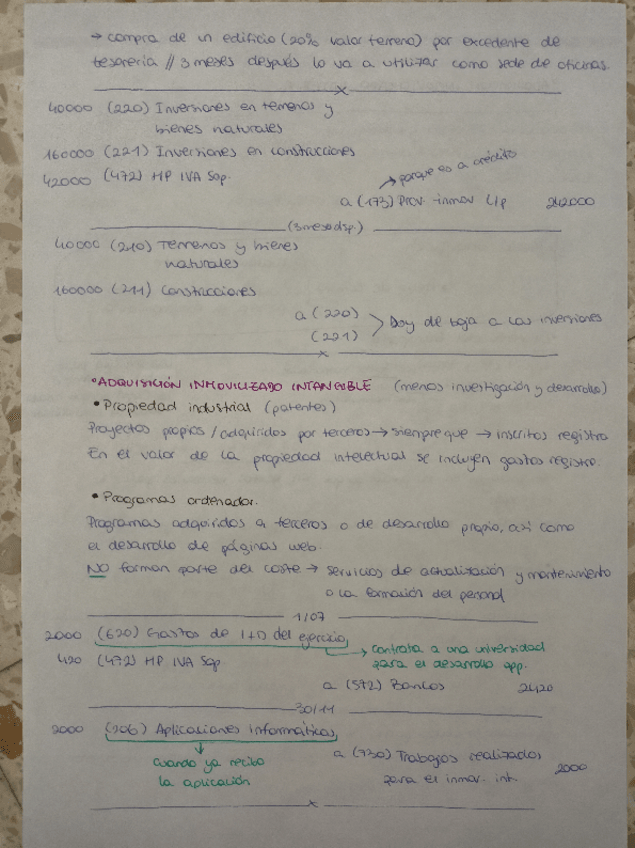 → compra de un edificio (20% valor terreno) por excedente de
tesorería // 3 meses después lo va a utilizar como sede de oficinas.
x
40000 (220) Inversiones en terrenos y
bienes naturales
160000 (221) Inversiones en construcciones
→ porque es a crédito
42000 (472) HP IVA Sop.
a (173) Prov. inmov L/p 242000
(3 meses dsp.)
40000 (210) Terrenos y bienes
naturales
160000 (211) Construcciones
a (220)
(221) > Doy de baja a las inversiones
x
• ADQUISICIÓN INMOVILIZADO INTANGIBLE (menos investigación y desarrollo)
• Propiedad industrial (patentes)
Proyectos propios / adquiridos por terceros → siempre que → inscritos registro.
En el valor de la propiedad intelectual se incluyen gastos registro.
• Programas ordenador.
Programas adquiridos a terceros o de desarrollo propio, así como
el desarrollo de páginas web.
NO forman parte del coste → servicios de actualización y mantenimiento
o la formación del personal
1/07
2000 (620) Gastos de I+D del ejercicio
→ contrata a una universidad
420 (472) HP IVA Sop.
para el desarrollo app.
a (572) Bancos 2420
30/11
2000 (206) Aplicaciones informáticas
a (730) Trabajos realizados
para el inmov. int. 2000
cuando ya recibo
la aplicación
x